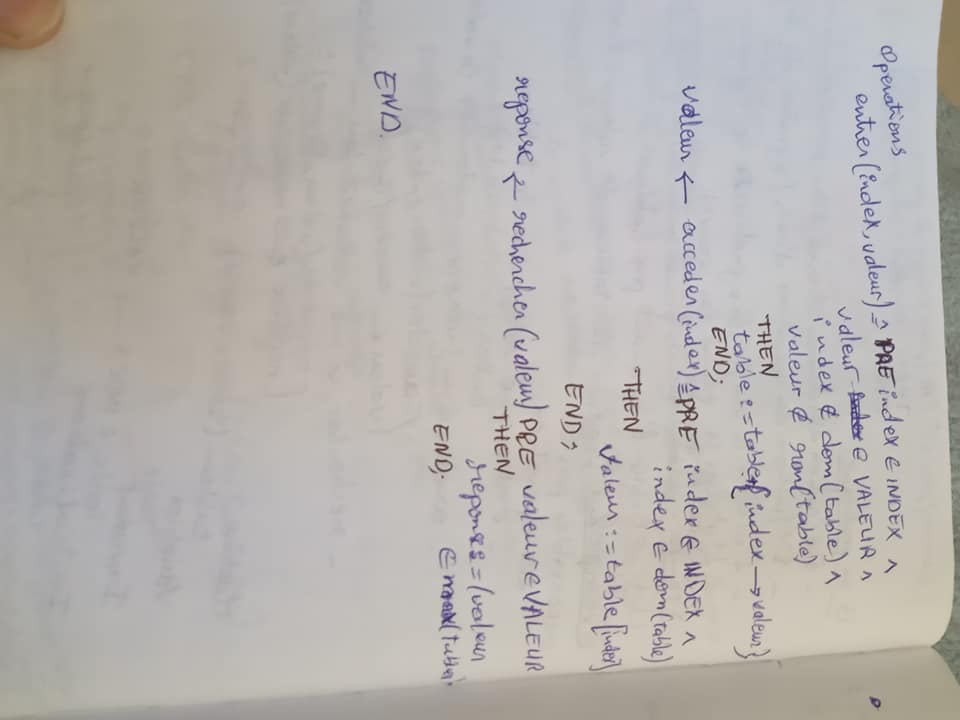 Operations
entrer(index, valeur) ≙ PRE index ∈ INDEX ∧
valeur ∈ VALEUR ∧
index ∉ dom(table) ∧
valeur ∉ ran(table)
THEN
table := table {index → valeur}
END;
valeur ← acceder(index) ≙ PRE index ∈ INDEX ∧
index ∈ dom(table)
THEN
Valeur := table[index]
END;
reponse ← rechercher(valeur) PRE valeur ∈ VALEUR
THEN
reponse := (valeur
END; ∈ (table)
END.